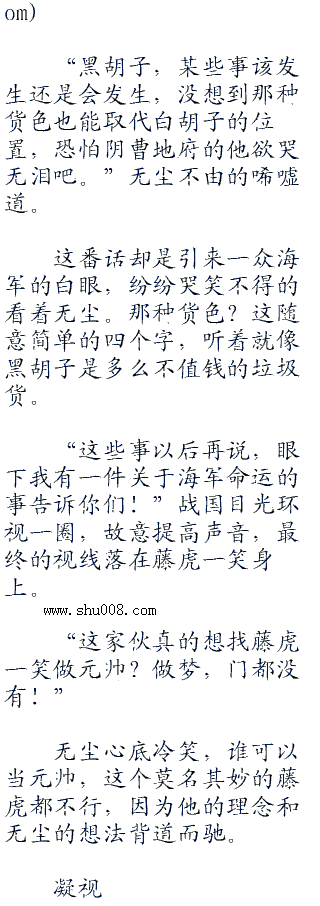 om)
“黑胡子，某些事该发
生还是会发生，没想到那种
货色也能取代白胡子的位
置，恐怕阴曹地府的他欲哭
无泪吧。”无尘不由的唏嘘
道。
这番话却是引来一众海
军的白眼，纷纷哭笑不得的
看着无尘。那种货色？这随
意简单的四个字，听着就像
黑胡子是多么不值钱的垃圾
货。
“这些事以后再说，眼
下我有一件关于海军命运的
事告诉你们！”战国目光环
视一圈，故意提高声音，最
终的视线落在藤虎一笑身
上。
www.shu008.com
“这家伙真的想找藤虎
一笑做元帅？做梦，门都没
有！”
无尘心底冷笑，谁可以
当元帅，这个莫名其妙的藤
虎都不行，因为他的理念和
无尘的想法背道而驰。
凝视